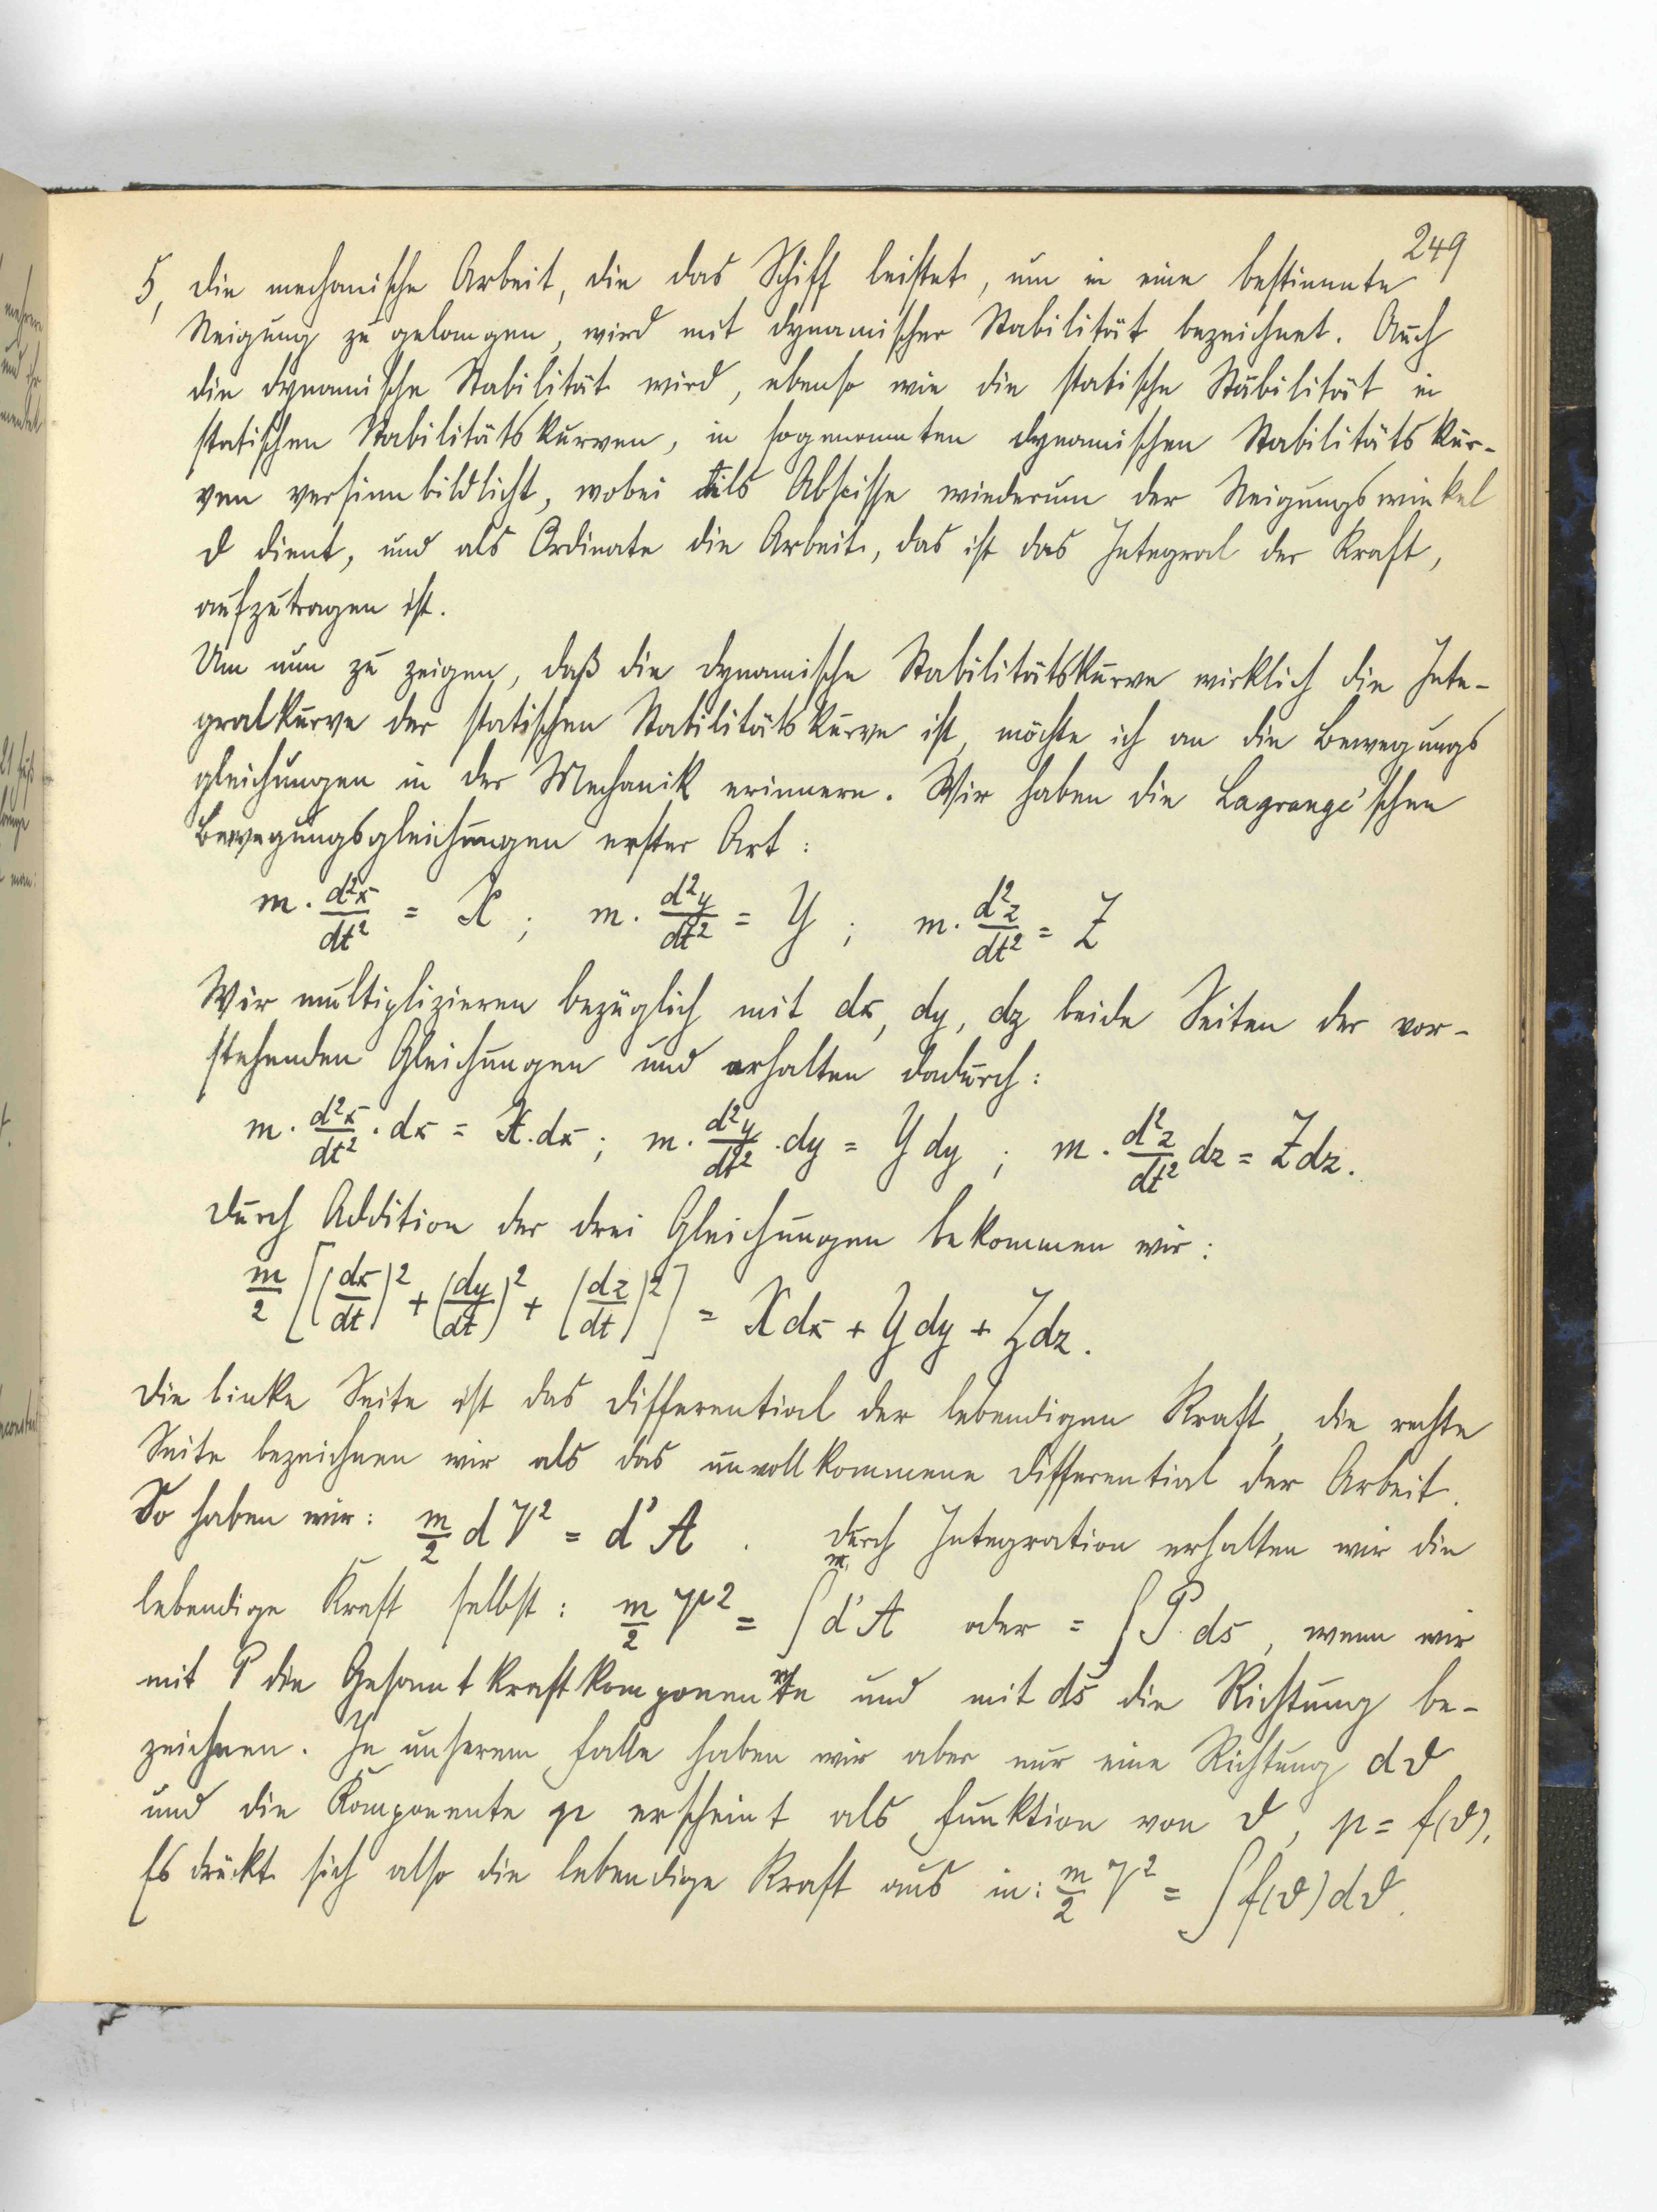 249
5, die mechanische Arbeit, die das Schiff leistet, um in eine bestimmte
Neigung zu gelangen, wird mit dynamischer Stabilität bezeichnet. Auch
die dynamische Stabilität wird, ebenso wie die statische Stabilität in
statischen Stabilitätskurven, in sogenannten dynamischen Stabilitätskur-
ven versinnbildlicht, wobei als Abscisse wiederum der Neigungswinkel
ϑ dient, und als Ordinate die Arbeit, das ist das Integral der Kraft,
aufzutragen ist.
Um nun zu zeigen, daß die dynamische Stabilitätskurve wirklich die Inte-
gralkurve der statischen Stabilitätskurve ist, möchte ich an die Bewegungs
gleichungen in der Mechanik erinnern. Wir haben die Lagrange'schen
Bewegungsgleichungen erster Art:
m · d²x/dt² = X ; m · d²y/dt² = Y ; m · d²z/dt² = Z
Wir multiplizieren bezüglich mit dx, dy, dz beide Seiten der vor-
stehenden Gleichungen und erhalten dadurch:
m · d²x/dt² · dx = X · dx ; m · d²y/dt² · dy = Y dy ; m · d²z/dt² dz = Z dz.
Durch Addition der drei Gleichungen bekommen wir:
m/2 [(dx/dt)² + (dy/dt)² + (dz/dt)²] = X dx + Y dy + Z dz.
Die linke Seite ist das Differential der lebendigen Kraft, die rechte
Seite bezeichnen wir als das unvollkommene Differential der Arbeit.
So haben wir: m/2 d V² = d' A . Durch Integration erhalten wir die
lebendige Kraft selbst: m/2 V² = ∫ d' A oder = ∫ P · ds, wenn wir
mit P die Gesamtkraftkomponente und mit ds die Richtung be-
zeichnen. In unserem Falle haben wir aber nur eine Richtung dϑ
und die Komponente p erscheint als Funktion von ϑ, p = f(ϑ).
Es drückt sich also die lebendige Kraft aus in: m/2 V² = ∫ f(ϑ) dϑ.